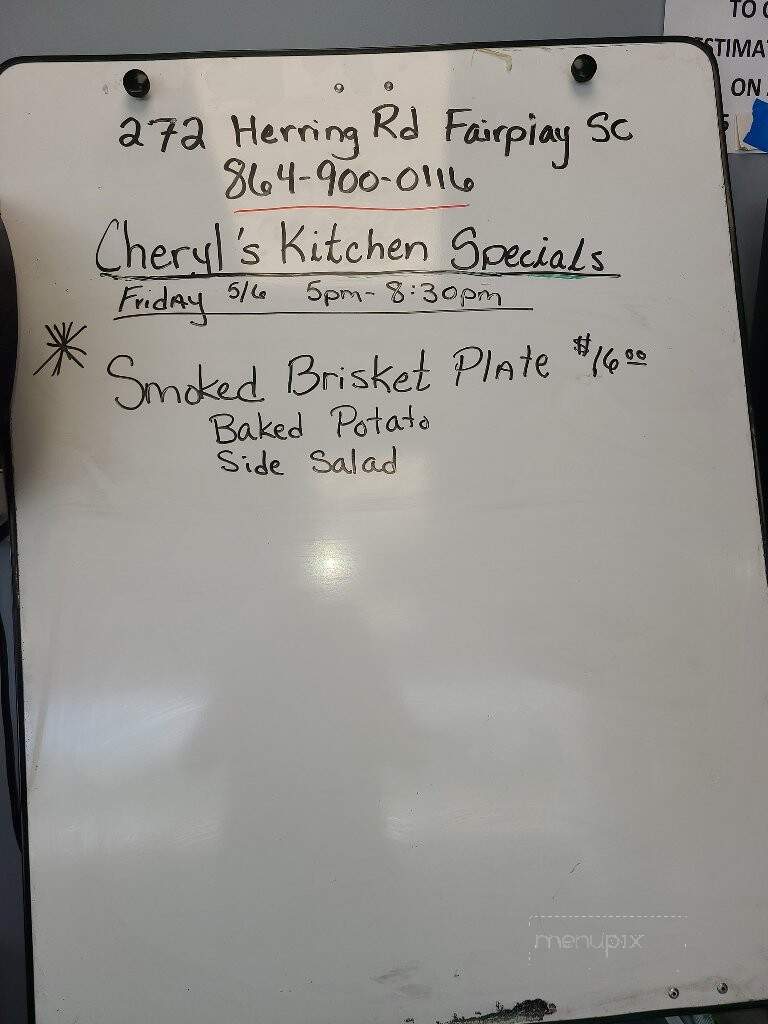 TO
STIMA
ON
272 Herring Rd Fairpiay SC
864-900-0116
Cheryl's Kitchen Specials
Friday 5/6 5pm-8:30pm
* Smoked Brisket Plate $16.00
Baked Potato
Side Salad
menupix